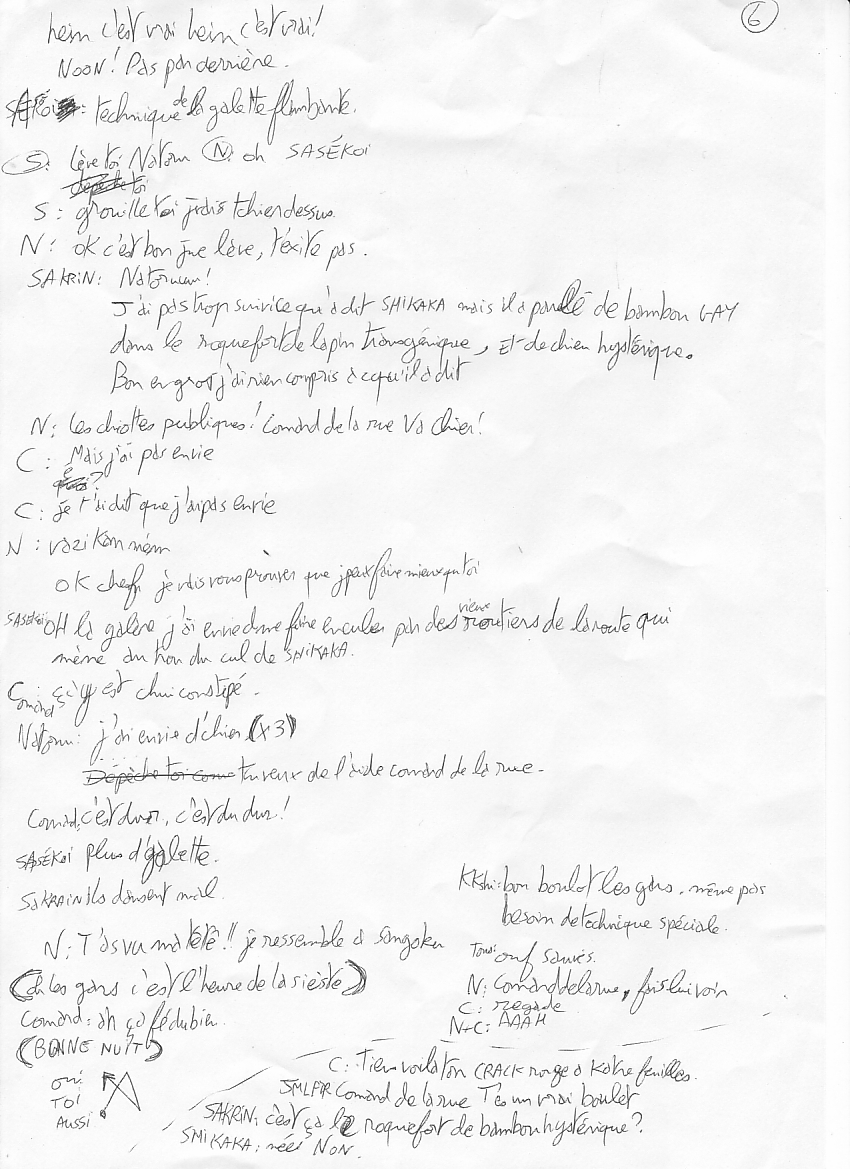 6
hein c'est vrai hein c'est vrai!
NOON! Pas par derrière.
technique de la galette flambante.
S: lève toi Natoru N: oh SASÉKOI
S: grouille toi j'vais t'chier dessus.
N: OK c'est bon j'me lève, t'éxite pas.
SAKRIN: Natoruuu!
J'ai pas trop suivi ce qu'a dit SHIKAKA mais il a parlé de bambou GAY
dans le roquefort de lapin transgénique, Et de chien hystérique.
Bon en gros j'ai rien compris à c'qu'il a dit
N: Les chiottes publiques! Comard de la rue Va chier!
C: Mais j'ai pas envie
C: je t'ai dit que j'ai pas envie
N: vazi kan mém
OK chef je vais vous prouver que j'peux faire mieux qu'toi
SASEKOI OH la galère j'ai envie d'me faire enculer par des vieux routiers de la route qui
même du trou du cul de SHIKAKA.
Comard: ça y est chui constipé.
Natoru: j'ai envie d'chier (x3)
Dépèche toi tu veux de l'aide comard de la rue.
Comard: c'est dur, c'est du dur!
SASÉKOI plus d'galette.
SAKRAIN ils dansent mal.
KKshi: bon boulot les gars. même pas
besoin de technique spéciale.
N: T'as vu ma tête!! je ressemble à Sangoku
Tous: ouf sauvés.
(Oh les gars c'est l'heure de la sièste)
N: Comard de la rue, fais lui voir
C: regade
Comard: ah ça fé du bien.
N+C: AAAH
(BONNE NUIT)
oui
TOI
AUSSI
C: Tien voila ton CRACK rouge à Katre feuilles.
Comard de la rue T'es un vrai boulet
SAKRIN: c'est ça le roquefort de bambou hystérique?
SHIKAKA: néé NON.